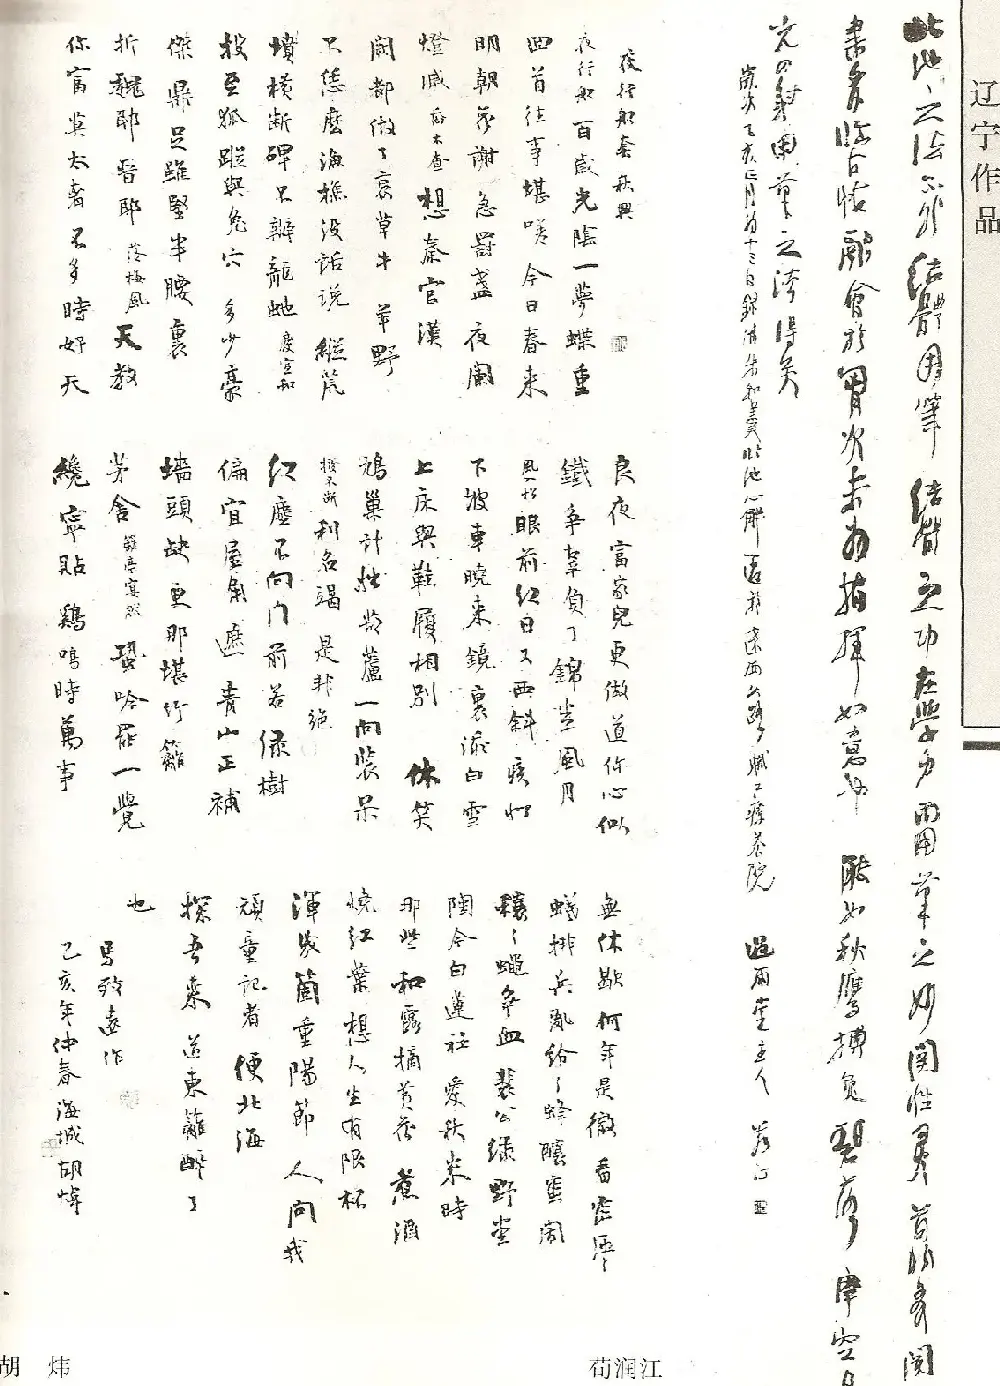 辽宁作品
之法不外結體用筆 結體之功在學力 而用筆之妙關性靈 苟非多閱
書多臨古帖融會於胸次未易指揮如意也 能如秋鷹搏兔碧落摩空目
光四射用筆之法得矣
歲次乙亥 錄清朱和羹臨池心解 主人
夜行船套秋興
夜行船百歲光陰一夢蝶重
回首往事堪嗟今日春來
明朝花謝急罰盞夜闌
燈滅喬木查想秦宮漢
闕都做了衰草牛羊野
不恁麼漁樵沒話說縱荒
墳橫斷碑不辨龍蛇慶宣和
投至狐蹤與兔穴多少豪
傑鼎足雖堅半腰裏
折魏耶晉耶落梅風天教
你富莫太奢不多時好天
良夜富家兒更做道你心似
鐵爭辜負了錦堂風月
風入松眼前紅日又西斜疾似
下坡車曉來鏡裏添白雪
上床與鞋履相別休笑
鳩巢計拙葫蘆一向裝呆
撥不斷利名竭是非絕
紅塵不向門前惹綠樹
偏宜屋角遮青山正補
墻頭缺更那堪竹籬
茅舍離亭宴煞蛩吟罷一覺
纔寧貼鷄鳴時萬事
無休歇何年是徹看密匝
蟻排兵亂紛紛蜂釀蜜鬧
穰穰蠅爭血裴公綠野堂
陶令白蓮社愛秋來時
那些和露摘黃花煮酒
燒紅葉想人生有限杯
渾幾箇重陽節人問我
頑童記者便北海
探吾來道東籬醉了
也
馬致遠作
乙亥年仲春海城胡煒
胡 炜
荀润江